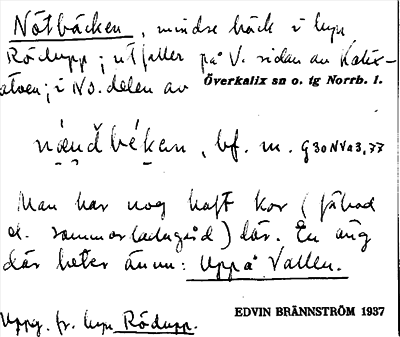 Nötbäcken, mindre bäck i byn
Rödupp; utfaller på V. sidan av Kalix-
älven; i NO. delen av Överkalix sn o. tg Norrb. l.
bf. m.
Man har nog haft kor (fäbod
el. sommarladugård) där. En äng
där heter ännu: Uppå Vallen.
Uppg. fr. byn Rödupp.
EDVIN BRÄNNSTRÖM 1937